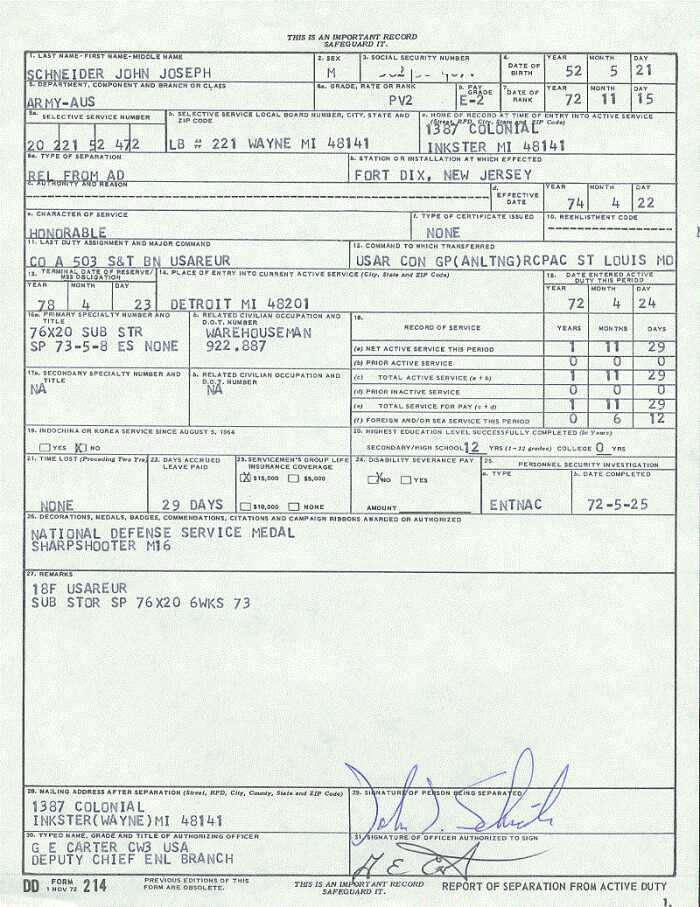 THIS IS AN IMPORTANT RECORD
SAFEGUARD IT.
1. LAST NAME - FIRST NAME - MIDDLE NAME
SCHNEIDER JOHN JOSEPH
2. SEX
M
3. SOCIAL SECURITY NUMBER
4. DATE OF BIRTH
YEAR MONTH DAY
52 5 21
5. DEPARTMENT, COMPONENT AND BRANCH OR CLASS
ARMY-AUS
6a. GRADE, RATE OR RANK
PV2
b. PAY GRADE
E-2
7. DATE OF RANK
YEAR MONTH DAY
72 11 15
8a. SELECTIVE SERVICE NUMBER
20 221 52 472
b. SELECTIVE SERVICE LOCAL BOARD NUMBER, CITY, STATE AND ZIP CODE
LB # 221 WAYNE MI 48141
c. HOME OF RECORD AT TIME OF ENTRY INTO ACTIVE SERVICE
(Street, RFD, City, State and Zip Code)
1387 COLONIAL
INKSTER MI 48141
9a. TYPE OF SEPARATION
REL FROM AD
b. STATION OR INSTALLATION AT WHICH EFFECTED
FORT DIX, NEW JERSEY
c. AUTHORITY AND REASON
d. EFFECTIVE DATE
YEAR MONTH DAY
74 4 22
e. CHARACTER OF SERVICE
HONORABLE
f. TYPE OF CERTIFICATE ISSUED
NONE
10. REENLISTMENT CODE
11. LAST DUTY ASSIGNMENT AND MAJOR COMMAND
CO A 503 S&T BN USAREUR
12. COMMAND TO WHICH TRANSFERRED
USAR CON GP(ANLTNG)RCPAC ST LOUIS MO
13. TERMINAL DATE OF RESERVE/
MSS OBLIGATION
YEAR MONTH DAY
78 4 23
14. PLACE OF ENTRY INTO CURRENT ACTIVE SERVICE (City, State and ZIP Code)
DETROIT MI 48201
15. DATE ENTERED ACTIVE DUTY THIS PERIOD
YEAR MONTH DAY
72 4 24
16a. PRIMARY SPECIALTY NUMBER AND TITLE
76X20 SUB STR
SP 73-5-8 ES NONE
b. RELATED CIVILIAN OCCUPATION AND D.O.T. NUMBER
WAREHOUSEMAN
922.887
18. RECORD OF SERVICE
YEARS MONTHS DAYS
(a) NET ACTIVE SERVICE THIS PERIOD 1 11 29
(b) PRIOR ACTIVE SERVICE 0 0 0
(c) TOTAL ACTIVE SERVICE (a + b) 1 11 29
(d) PRIOR INACTIVE SERVICE 0 0 0
(e) TOTAL SERVICE FOR PAY (c + d) 1 11 29
(f) FOREIGN AND/OR SEA SERVICE THIS PERIOD 0 6 12
17a. SECONDARY SPECIALTY NUMBER AND TITLE
NA
b. RELATED CIVILIAN OCCUPATION AND D.O.T. NUMBER
NA
19. INDOCHINA OR KOREA SERVICE SINCE AUGUST 5, 1964
YES X NO
20. HIGHEST EDUCATION LEVEL SUCCESSFULLY COMPLETED (In Years)
SECONDARY/HIGH SCHOOL 12 YRS (1-12 grades) COLLEGE 0 YRS
21. TIME LOST (Preceding Two Yrs)
NONE
22. DAYS ACCRUED LEAVE PAID
29 DAYS
23. SERVICEMEN'S GROUP LIFE INSURANCE COVERAGE
X $15,000 $5,000
$10,000 NONE
24. DISABILITY SEVERANCE PAY
X NO YES
AMOUNT
25. PERSONNEL SECURITY INVESTIGATION
a. TYPE
ENTNAC
b. DATE COMPLETED
72-5-25
26. DECORATIONS, MEDALS, BADGES, COMMENDATIONS, CITATIONS AND CAMPAIGN RIBBONS AWARDED OR AUTHORIZED
NATIONAL DEFENSE SERVICE MEDAL
SHARPSHOOTER M16
27. REMARKS
18F USAREUR
SUB STOR SP 76X20 6WKS 73
28. MAILING ADDRESS AFTER SEPARATION (Street, RFD, City, County, State and ZIP Code)
1387 COLONIAL
INKSTER(WAYNE)MI 48141
29. SIGNATURE OF PERSON BEING SEPARATED
John J. Schneider
30. TYPED NAME, GRADE AND TITLE OF AUTHORIZING OFFICER
G E CARTER CW3 USA
DEPUTY CHIEF ENL BRANCH
31. SIGNATURE OF OFFICER AUTHORIZED TO SIGN
DD FORM 1 NOV 72 214
PREVIOUS EDITIONS OF THIS FORM ARE OBSOLETE.
THIS IS AN IMPORTANT RECORD
SAFEGUARD IT.
REPORT OF SEPARATION FROM ACTIVE DUTY
1.